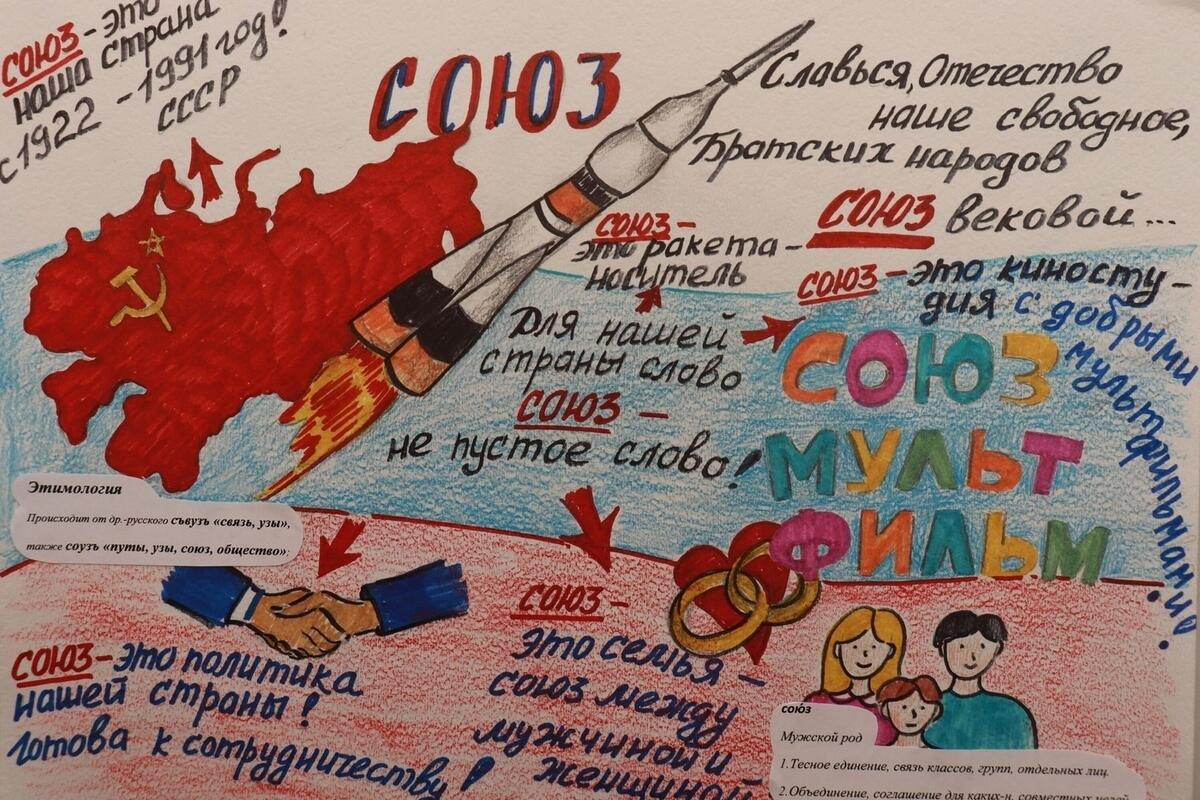 СОЮЗ - это
наша страна
с 1922 - 1991 год!
СССР
СОЮЗ
Славься, Отечество
наше свободное,
Братских народов
СОЮЗ вековой...
СОЮЗ -
это ракета-
носитель
СОЮЗ - это киносту-
дия с добрыми
мультфильмами.
Для нашей
страны слово
СОЮЗ -
не пустое слово!
СОЮЗ
МУЛЬТ
ФИЛЬМ
Этимология
Происходит от др.-русского съвузъ «связь, узы»,
также соузъ «путы, узы, союз, общество»;
СОЮЗ - это политика
нашей страны!
Готова к сотрудничеству!
СОЮЗ -
это семья -
союз между
мужчиной и
женщиной
сою́з
Мужской род
1. Тесное единение, связь классов, групп, отдельных лиц.
2. Объединение, соглашение для каких-н. совместных целей